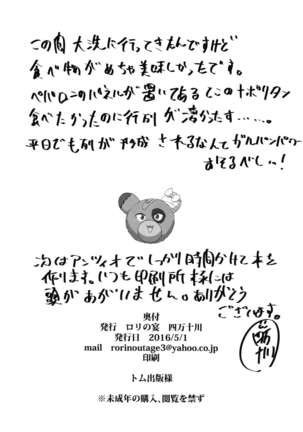 この間 大洗に行ってきたんですけど
食べ物がめちゃ美味しかったです。
ペパロニのパネルが置いてあるとこのナポリタン
食べたかったのに行列が凄かったす……。
平日でも列が形成されるなんてガルパンパワー
おそるべしー!
次はアンツィオでしっかり時間かけて本を
作ります。いつも印刷所様には
頭があがいません。ありがとう
ございます。
奥付
発行 ロリの宴 四万十川
発行日 2016/5/1
mail rorinoutage3@yahoo.co.jp
印刷
トム出版様
※未成年の購入、閲覧を禁ず